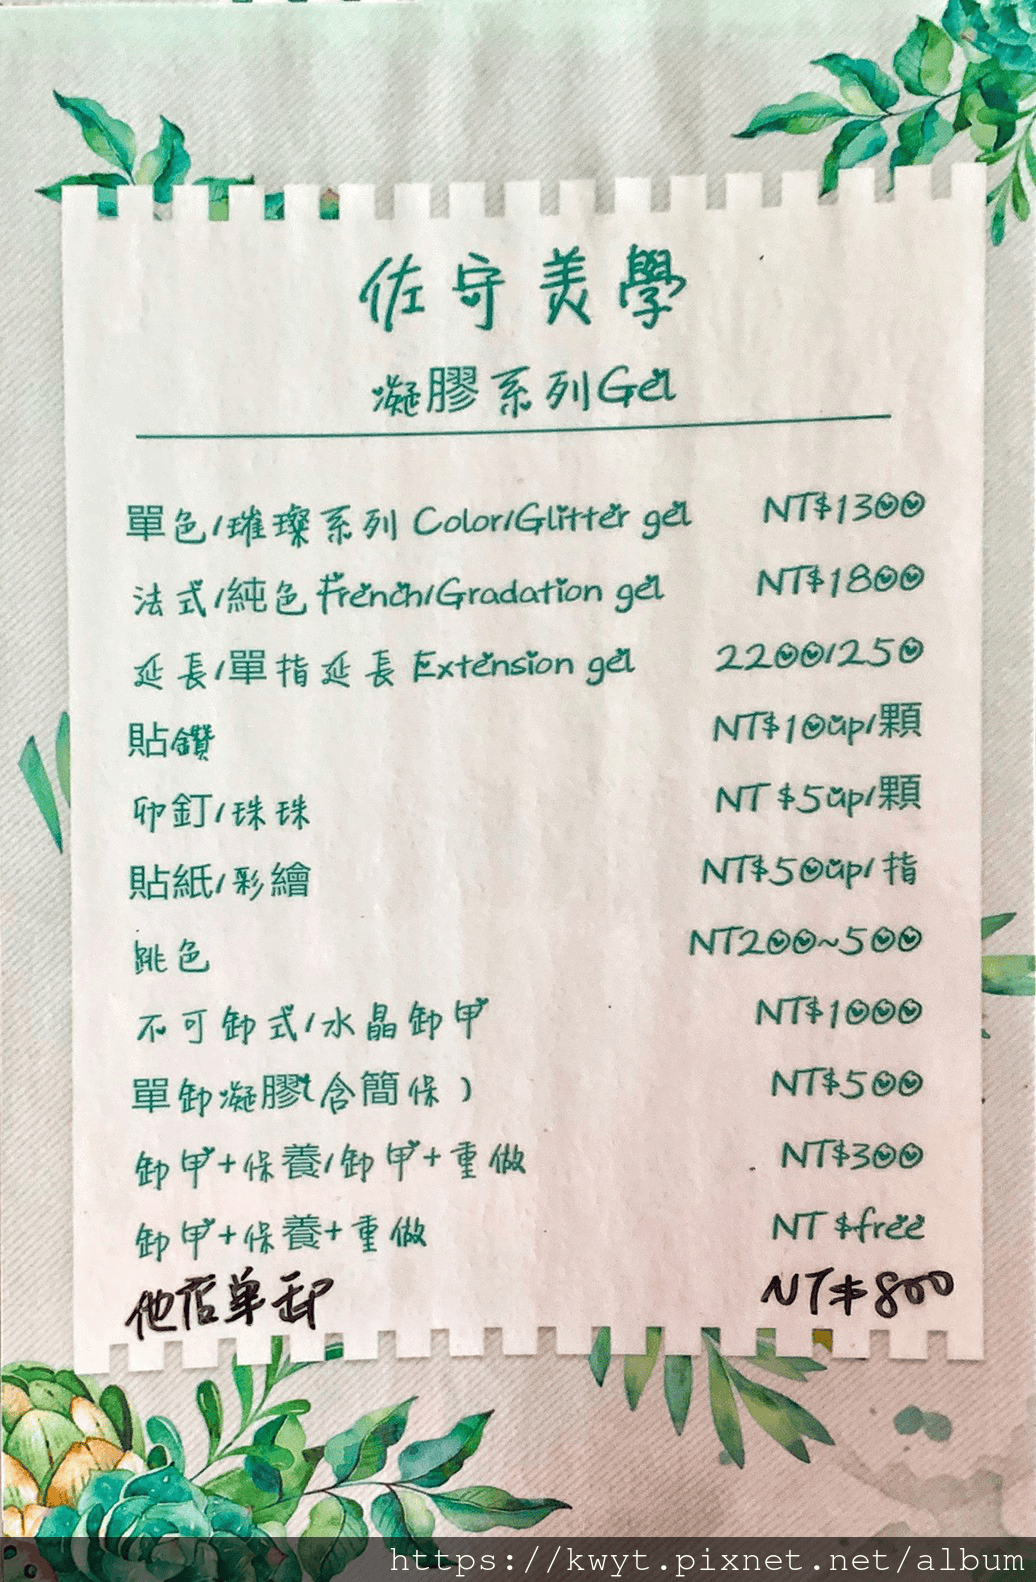 佐守美學
凝膠系列Gel
單色/璀璨系列 Color/Glitter gel NT$1300
法式/純色 French/Gradation gel NT$1800
延長/單指延長 Extension gel 2200/250
貼鑽 NT$10up/顆
卯釘/珠珠 NT $5up/顆
貼紙/彩繪 NT$50up/指
跳色 NT200~500
不可卸式/水晶卸甲 NT$1000
單卸凝膠(含簡保) NT$500
卸甲+保養/卸甲+重做 NT$300
卸甲+保養+重做 NT $free
他店单卸 NT$800
https://kwyt.pixnet.net/album